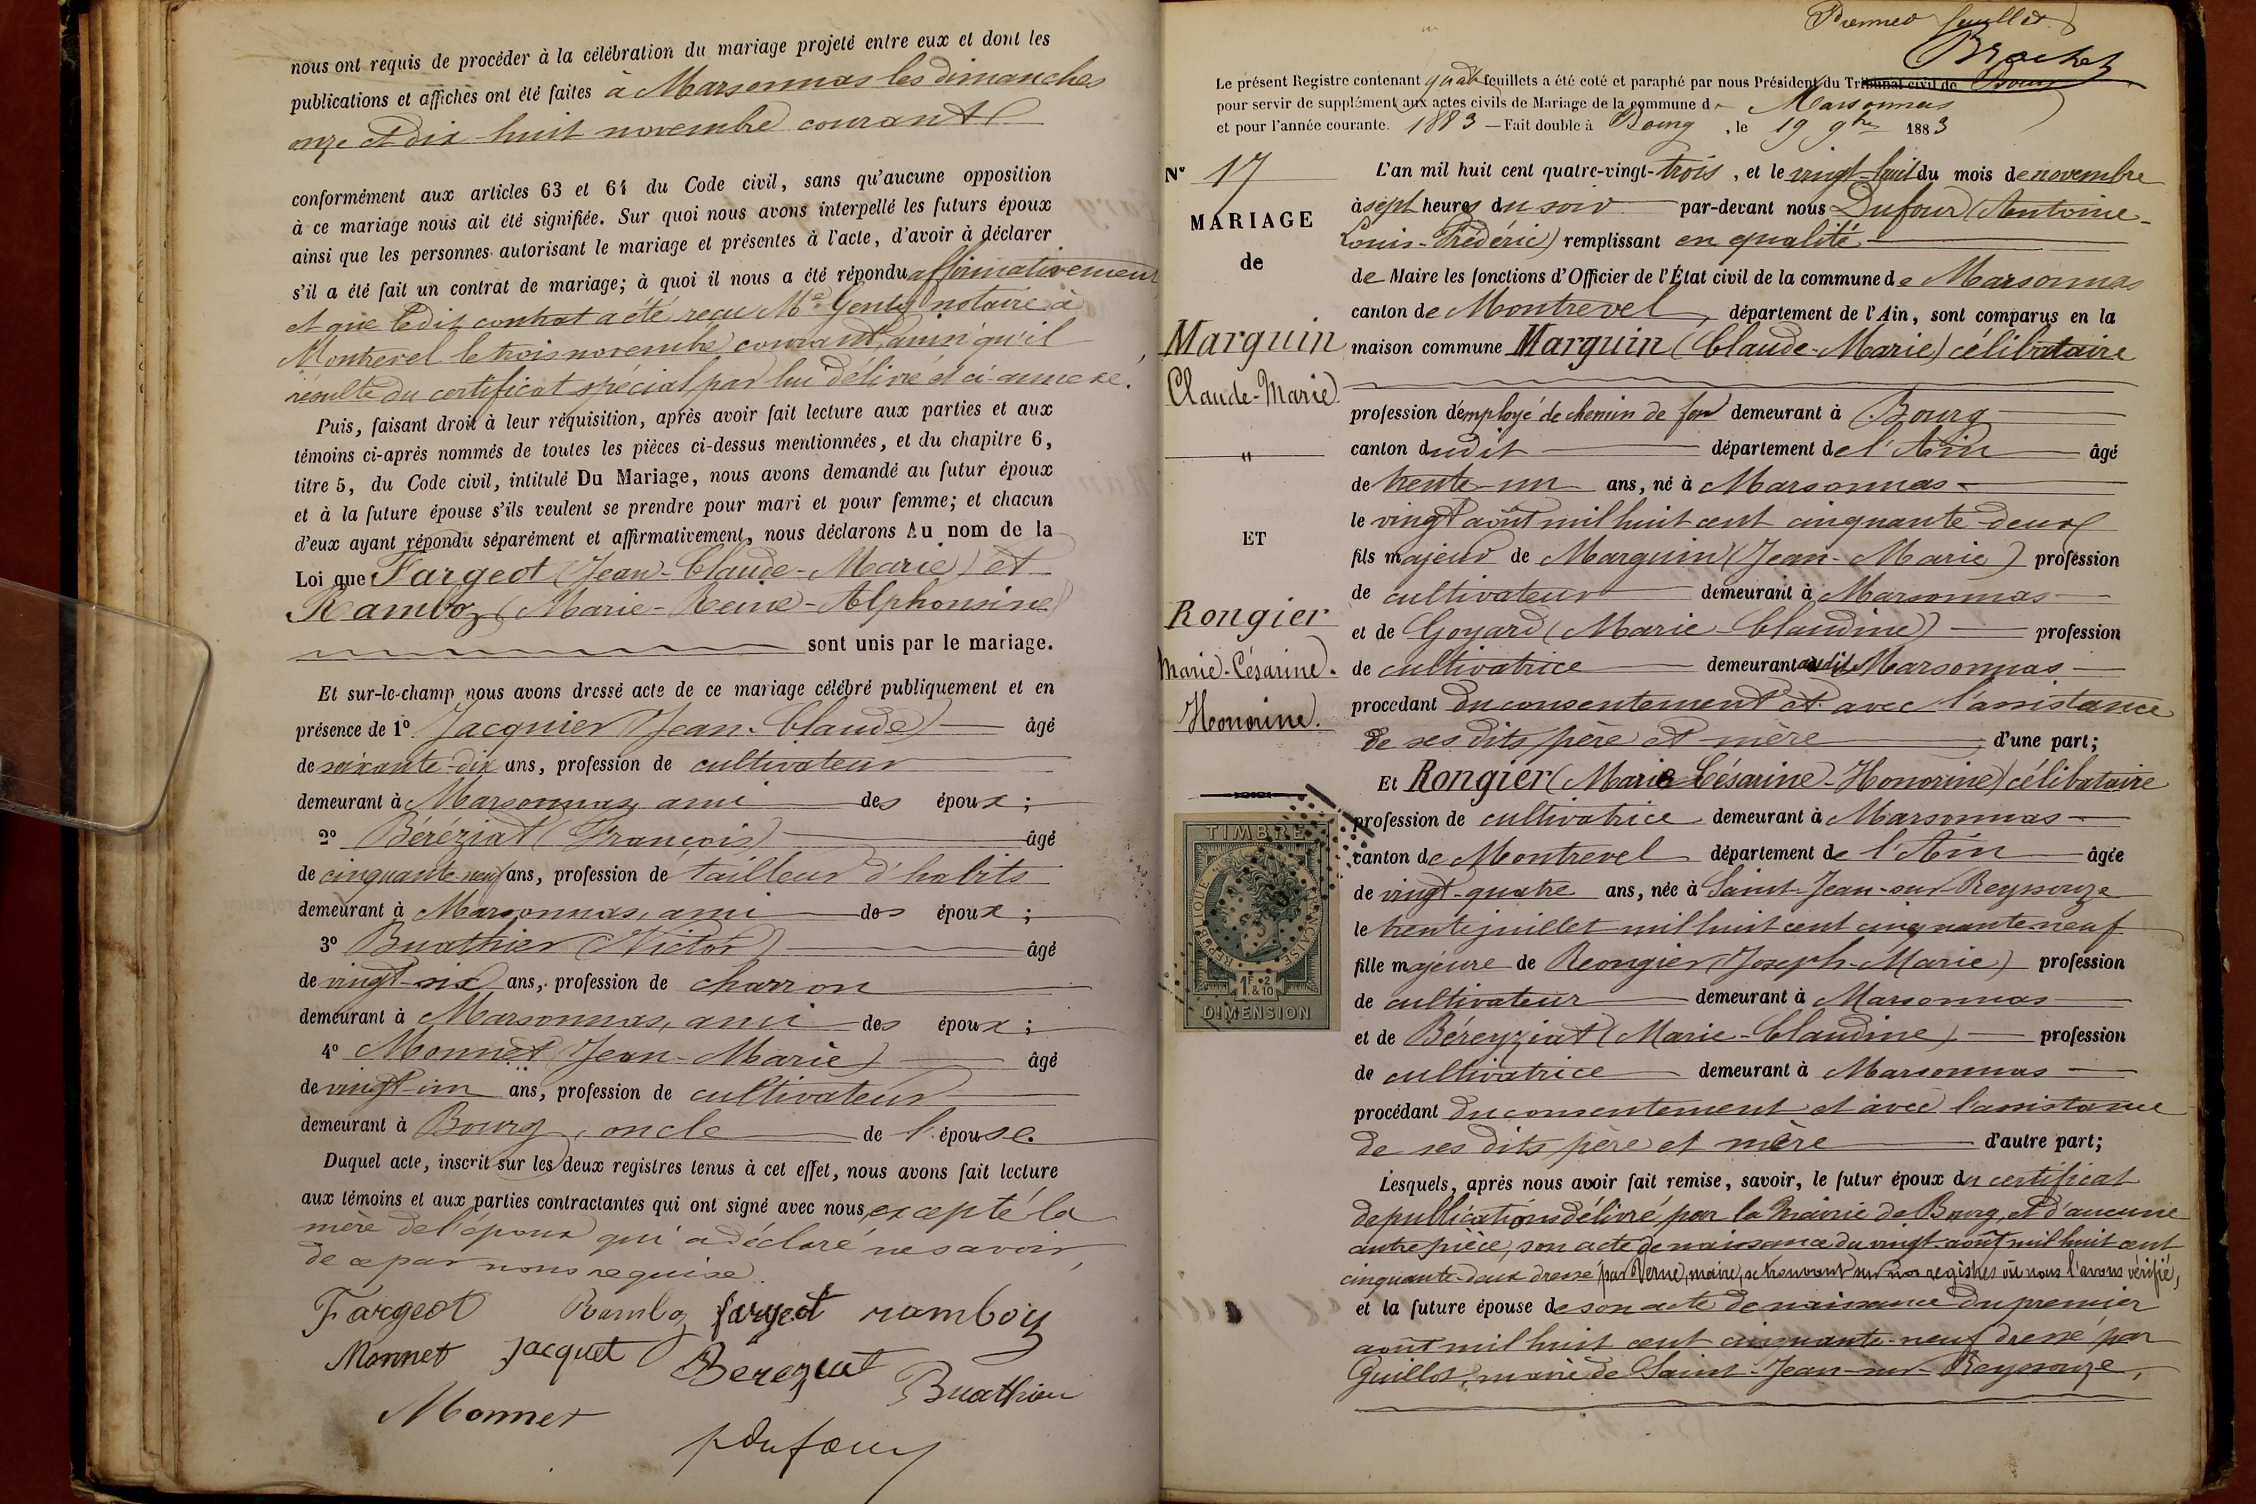 nous ont requis de procéder à la célébration du mariage projeté entre eux et dont les
publications et affiches ont été faites à Marsonnas les dimanches
onze et dix huit novembre courant
conformément aux articles 63 et 64 du Code civil, sans qu'aucune opposition
à ce mariage nous ait été signifiée. Sur quoi nous avons interpellé les futurs époux
ainsi que les personnes autorisant le mariage et présentes à l'acte, d'avoir à déclarer
s'il a été fait un contrat de mariage; à quoi il nous a été répondu affirmativement
et que ledit contrat a été reçu Me Genty notaire à
Montrevel le trois novembre courant, ainsi qu'il
résulte du certificat spécial par lui délivré et ci-annexé.
Puis, faisant droit à leur réquisition, après avoir fait lecture aux parties et aux
témoins ci-après nommés de toutes les pièces ci-dessus mentionnées, et du chapitre 6,
titre 5, du Code civil, intitulé Du Mariage, nous avons demandé au futur époux
et à la future épouse s'ils veulent se prendre pour mari et pour femme; et chacun
d'eux ayant répondu séparément et affirmativement, nous déclarons Au nom de la
Loi que Fargeot (Jean-Claude-Marie) et
Ramboz (Marie-Reine-Alphonsine)
sont unis par le mariage.
Et sur-le-champ nous avons dressé acte de ce mariage célébré publiquement et en
présence de 1º Jacquier (Jean-Claude) âgé
de soixante-dix ans, profession de cultivateur
demeurant à Marsonnas, ami des époux;
2º Béréziat (François) âgé
de cinquante neuf ans, profession de tailleur d'habits
demeurant à Marsonnas, ami des époux;
3º Buathier (Victor) âgé
de vingt-six ans, profession de charron
demeurant à Marsonnas, ami des époux;
4º Monnet (Jean-Marie) âgé
de vingt-un ans, profession de cultivateur
demeurant à Bourg, oncle de l'épouse.
Duquel acte, inscrit sur les deux registres tenus à cet effet, nous avons fait lecture
aux témoins et aux parties contractantes qui ont signé avec nous, excepté la
mère de l'époux qui a déclaré ne savoir,
de ce par nous requise.
Fargeot Ramboz fargeot ramboz
Monnet Jacquet Béréziat Buathier
Monnet
Dufour
Premier feuillet
Brachet
Le présent Registre contenant quatre feuillets a été coté et paraphé par nous Président du Tribunal civil de Bourg
pour servir de supplément aux actes civils de Mariage de la commune de Marsonnas
et pour l'année courante. 1883 — Fait double à Bourg, le 19 9bre 1883
Nº 17
MARIAGE
de
Marguin
Claude-Marie
"
ET
Rongier
Marie-Césarine-
Honorine.
TIMBRE
RÉPUBLIQUE FRANÇAISE
1F.&2/10
DIMENSION
L'an mil huit cent quatre-vingt-trois, et le vingt-huit du mois de novembre
à sept heures du soir par-devant nous Dufour (Antoine-
Louis-Frédéric) remplissant en qualité
de Maire les fonctions d'Officier de l'État civil de la commune de Marsonnas
canton de Montrevel, département de l'Ain, sont comparus en la
maison commune Marguin (Claude-Marie) célibataire
profession d'employé de chemin de fer demeurant à Bourg
canton dudit département de l'Ain âgé
de trente-un ans, né à Marsonnas
le vingt août mil huit cent cinquante-deux
fils majeur de Marguin (Jean-Marie) profession
de cultivateur demeurant à Marsonnas
et de Goyard (Marie-Claudine) profession
de cultivatrice demeurant audit Marsonnas
procédant du consentement et avec l'assistance
de ses dits père et mère d'une part;
Et Rongier (Marie-Césarine-Honorine) célibataire
profession de cultivatrice demeurant à Marsonnas
canton de Montrevel département de l'Ain âgée
de vingt-quatre ans, née à Saint-Jean-sur-Reyssouze
le trente juillet mil huit cent cinquante-neuf
fille majeure de Rongier (Joseph-Marie) profession
de cultivateur demeurant à Marsonnas
et de Béreyziat (Marie-Claudine) profession
de cultivatrice demeurant à Marsonnas
procédant du consentement et avec l'assistance
de ses dits père et mère d'autre part;
Lesquels, après nous avoir fait remise, savoir, le futur époux du certificat
de publications délivré par la Mairie de Bourg, et d'aucune
autre pièce, son acte de naissance du vingt août mil huit cent
cinquante-deux dressé par Verne, maire, se trouvant sur nos registres où nous l'avons vérifié,
et la future épouse de son acte de naissance du premier
août mil huit cent cinquante-neuf dressé par
Guillot, maire de Saint-Jean-sur-Reyssouze,